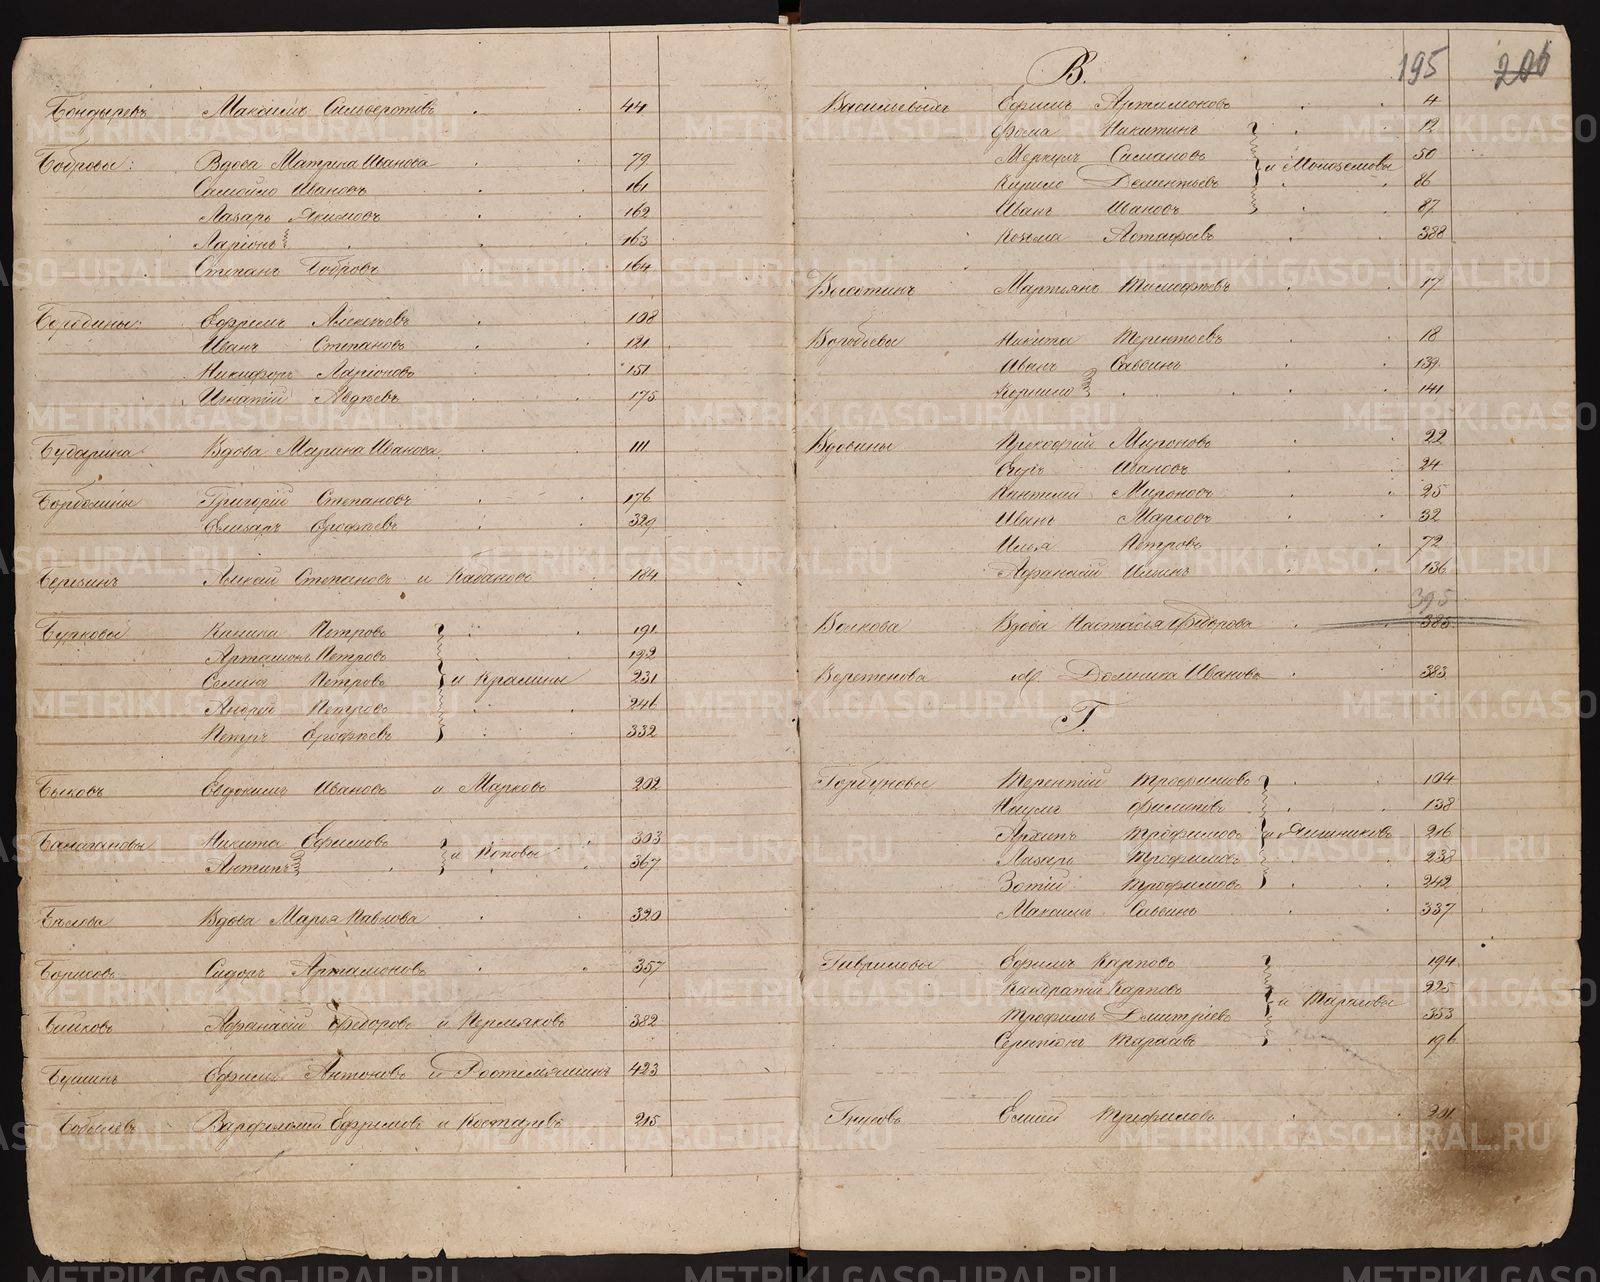 Бондыревъ Максимъ Сильверстовъ 44
Бобровы: Вдова Матрена Иванова 79
Самойло Ивановъ 161
Лазарь Якимовъ 162
Ларіонъ 163
Степанъ Бобровъ 164
Бородины: Ефремъ Алексѣевъ 108
Иванъ Степановъ 121
Никифоръ Ларіоновъ 151
Игнатій Авдѣевъ 175
Бударина Вдова Марина Иванова 111
Григорій Степановъ 176
Елизаръ Ерофѣевъ 329
Березинъ Алексѣй Степановъ и Кабановъ 184
Бурковы Калина Петровъ 191
Артамонъ Петровъ 192
Петровъ и Крамины 231
Андрей Петровъ 246
Петръ Ерофѣевъ 332
Быковъ Евдокимъ Ивановъ и Марковъ 202
Балагановы Никита Ефимовъ 303
Антипъ и Поповы 367
Вдова Марья Павлова 320
Борисовъ Сидоръ Артамоновъ 357
Аѳанасій Ѳедоровъ и Пермяковъ 382
Ефимъ Антоновъ и 423
Варфоломей Ефремовъ и Костаревъ 215
В. 195 206
Ефимъ Артамоновъ 4
Фома Никитинъ 12
Меркулъ Симановъ и Моноземовы 50
Кирило Дементьевъ 86
Иванъ Ивановъ 87
Козьма Астафьевъ 388
Мартьянъ Тимофѣевъ 17
Воробьевы Никита Терентьевъ 18
Иванъ Савинъ 139
Корнило 141
Вдовины Прокофій Мироновъ 22
Егоръ Ивановъ 24
Мироновъ 25
Иванъ Марковъ 32
Илья Петровъ 72
Афанасій Ильинъ 136
395
Волкова Вдова Настасія Ѳедорова 385
Веретенова Домника Иванова 383
Г.
Горбуновы Терентій Трофимовъ 104
Наумъ Филиповъ 138
Архипъ Трофимовъ 216
Лазарь Трофимовъ 238
Зотій Трофимовъ 242
Максимъ Савинъ 337
Гавриловы Ефимъ Карповъ 194
Кандратій Карповъ 225
и Тарасовы
Трофимъ Дмитріевъ 353
Тарасовъ 196
Гнусовъ Елисей Трофимовъ 201
METRIKI.GASO-URAL.RU